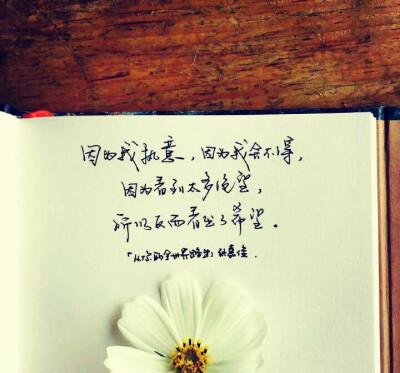 因为我执意，因为我舍不得，
因为看到太多绝望，
所以反而看到了希望。
「从你的全世界路过」张嘉佳.